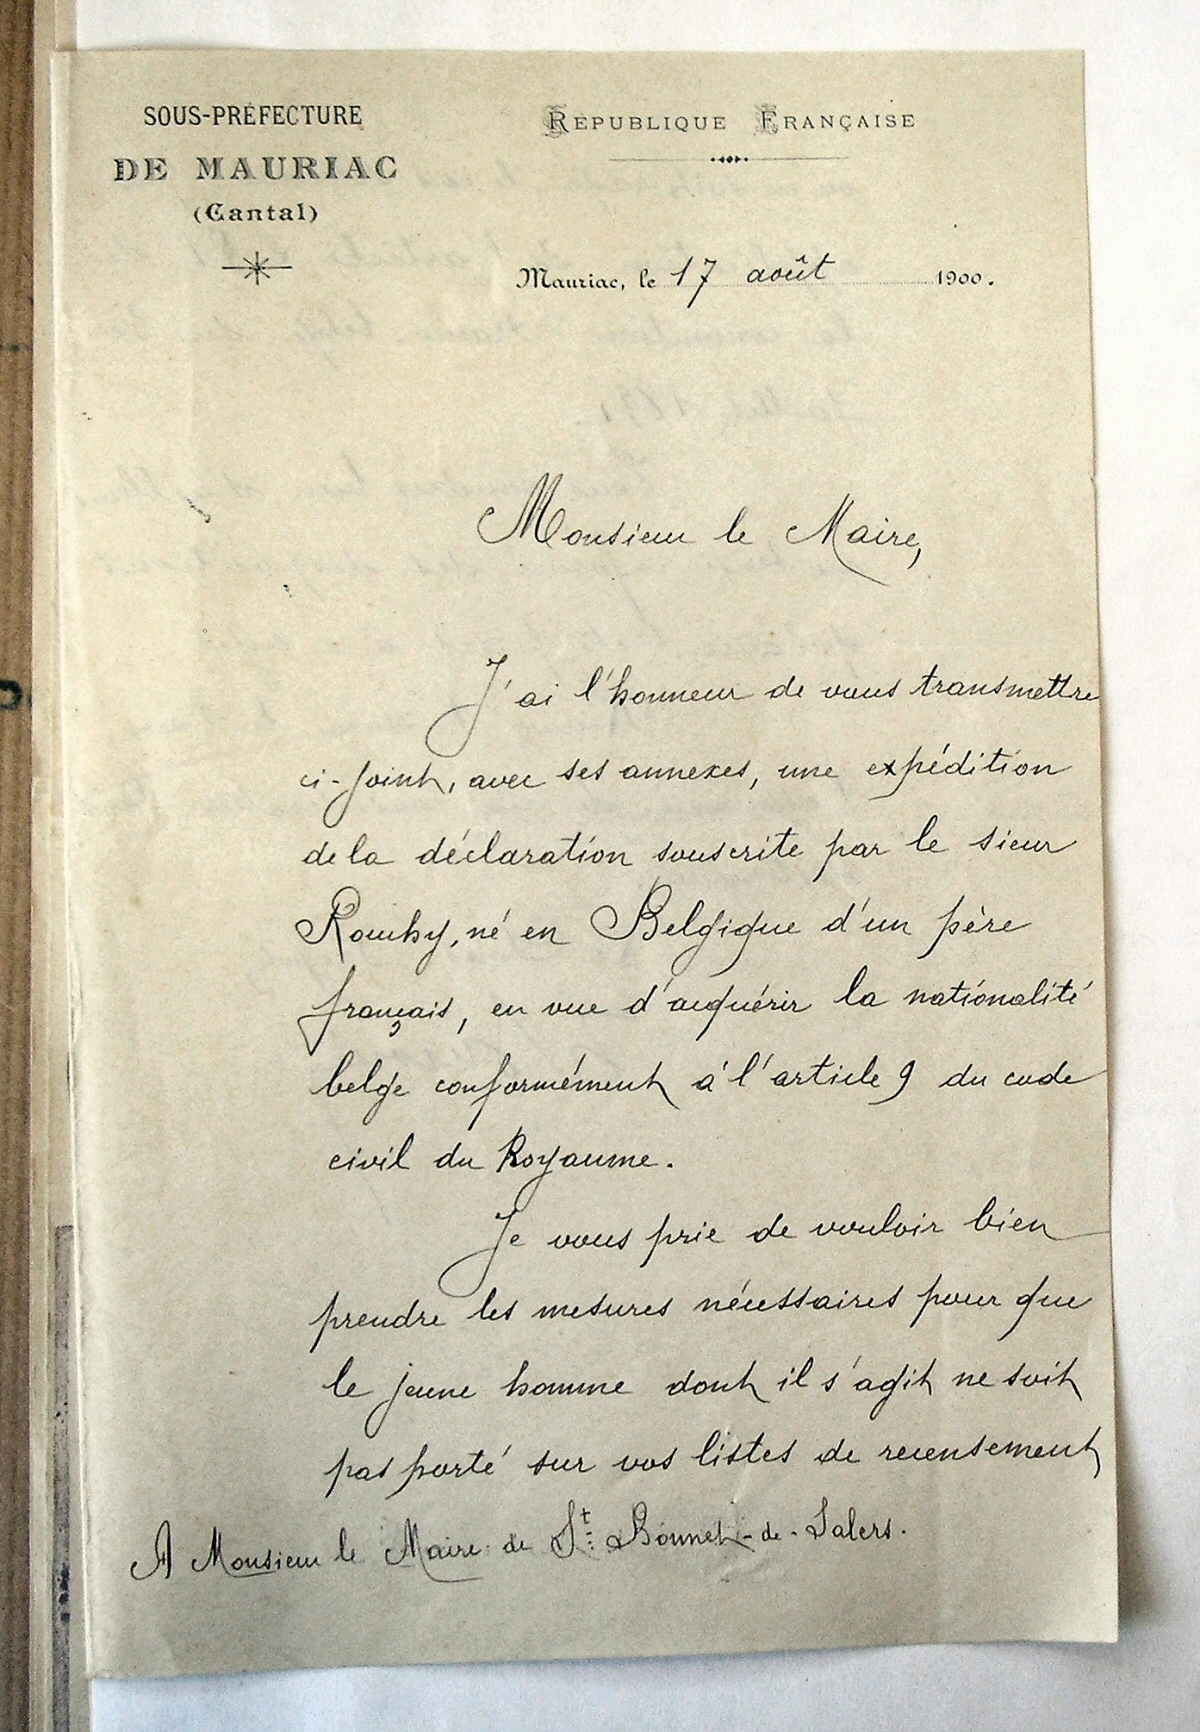 SOUS-PRÉFECTURE
DE MAURIAC
(Cantal)
RÉPUBLIQUE FRANÇAISE
Mauriac, le 17 août 1900.
Monsieur le Maire,
J'ai l'honneur de vous transmettre
ci-joint, avec ses annexes, une expédition
de la déclaration souscrite par le sieur
Rouhy, né en Belgique d'un père
français, en vue d'acquérir la nationalité
belge conformément à l'article 9 du code
civil du Royaume.
Je vous prie de vouloir bien
prendre les mesures nécessaires pour que
le jeune homme dont il s'agit ne soit
pas porté sur vos listes de recensement
A Monsieur le Maire de St Bonnet-de-Salers.